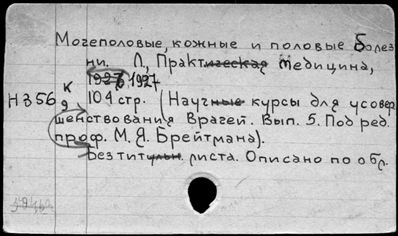 Мочеполовые, кожные и половые болез
ни. Л, Практическая медицина,
1926 1927
К
Н356
9
104 стр. (Научные курсы для усовер
шенствования врачей. Вып. 5. Под ред.
проф. М. Я. Брейтмана).
Без титульн. листа. Описано по обл.